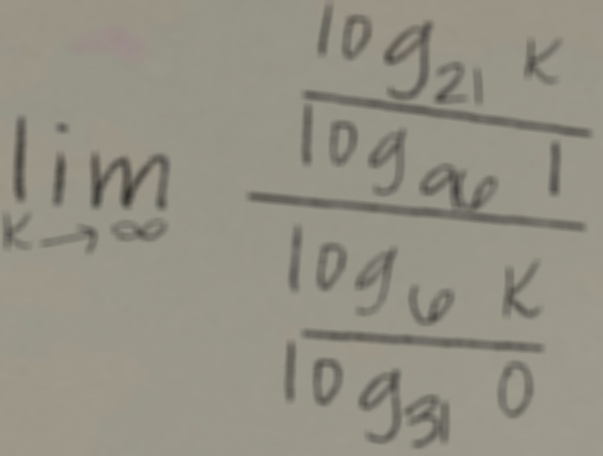 lim
k→∞
log₂₁ k
log₉₆ 1
log₆ k
log₃₁ 0